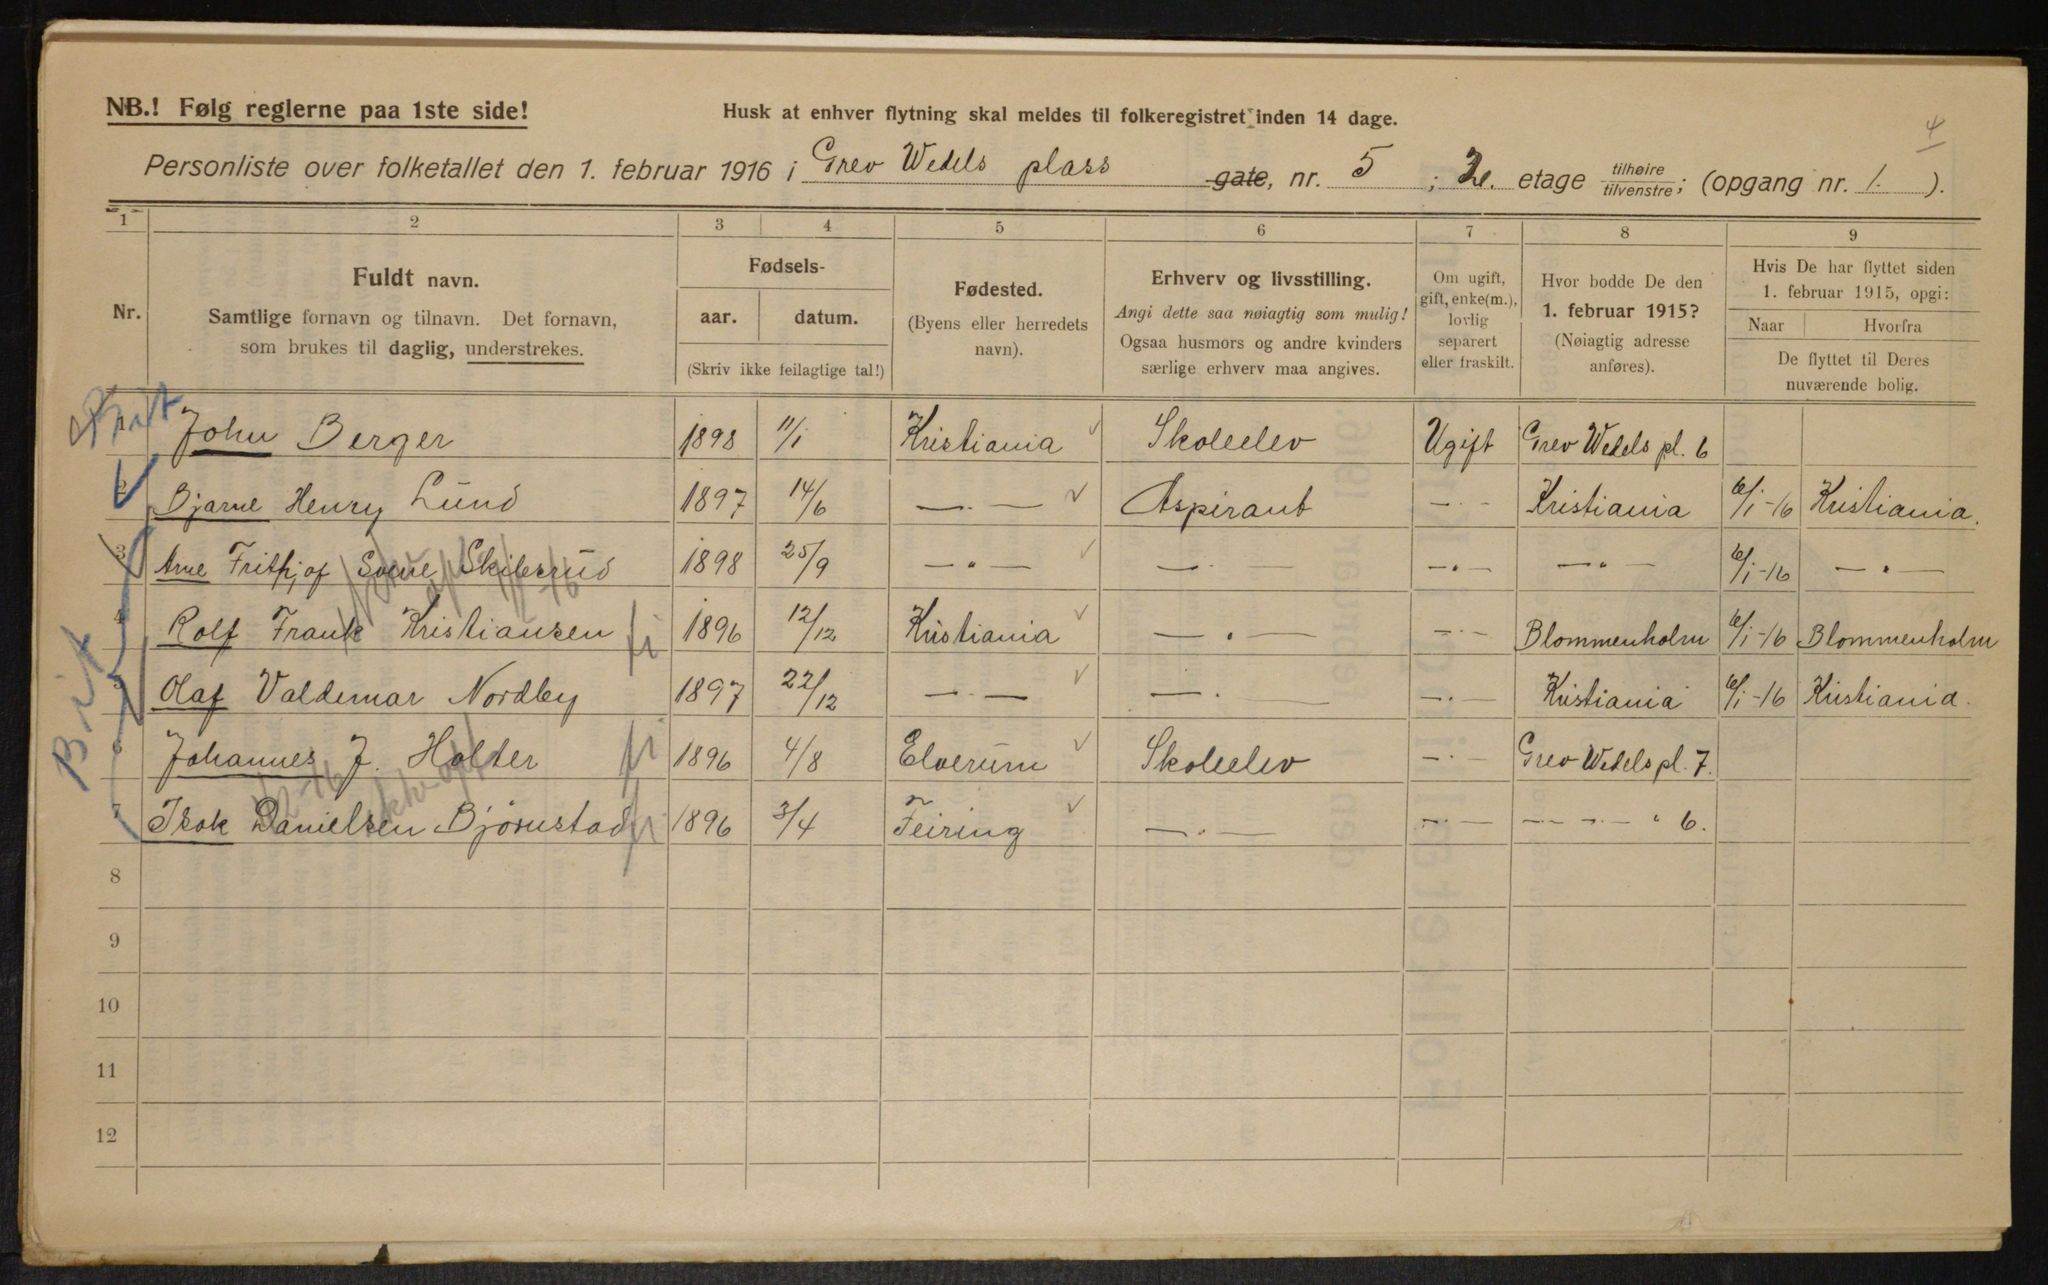 NB.! Følg reglerne paa 1ste side!
Husk at enhver flytning skal meldes til folkeregistret inden 14 dage.
4
Personliste over folketallet den 1. februar 1916 i Grev Wedels plass gate, nr. 5 ; 2. etage tilhøire tilvenstre; (opgang nr. 1. ).
1 2 3 4 5 6 7 8 9
Nr.
Fuldt navn.
Samtlige fornavn og tilnavn. Det fornavn,
som brukes til daglig, understrekes.
Fødsels-
aar. datum.
(Skriv ikke feilagtige tal!)
Fødested.
(Byens eller herredets
navn).
Erhverv og livsstilling.
Angi dette saa nøiagtig som mulig!
Ogsaa husmors og andre kvinders
særlige erhverv maa angives.
Om ugift,
gift, enke(m.),
lovlig
separert
eller fraskilt.
Hvor bodde De den
1. februar 1915?
(Nøiagtig adresse
anføres).
Hvis De har flyttet siden
1. februar 1915, opgi:
Naar Hvorfra
De flyttet til Deres
nuværende bolig.
John Berger 1898 11/1 Kristiania Skoleelev Ugift Grev Wedels pl. 6
2 Bjarne Henry Lund 1897 14/6 —〃— Aspirant —〃— Kristiania 6/1-16 Kristiania.
3 Arne Frithjof Svene Skiberud 1898 25/9 —〃— —〃— —〃— —〃— 6/1-16 —〃—
4 Rolf Frank Kristiansen 1896 12/12 Kristiania —〃— —〃— Blommenholm 6/1-16 Blommenholm
5 Olaf Valdemar Nordby 1897 22/12 —〃— —〃— —〃— Kristiania 6/1-16 Kristiania.
6 Johannes J. Holter 1896 4/8 Elverum Skoleelev —〃— Grev Wedels pl. 7.
7 Isak Danielsen Bjørnstad 1896 3/4 Feiring —〃— —〃— —〃— —〃— 〃 6.
8
9
10
11
12